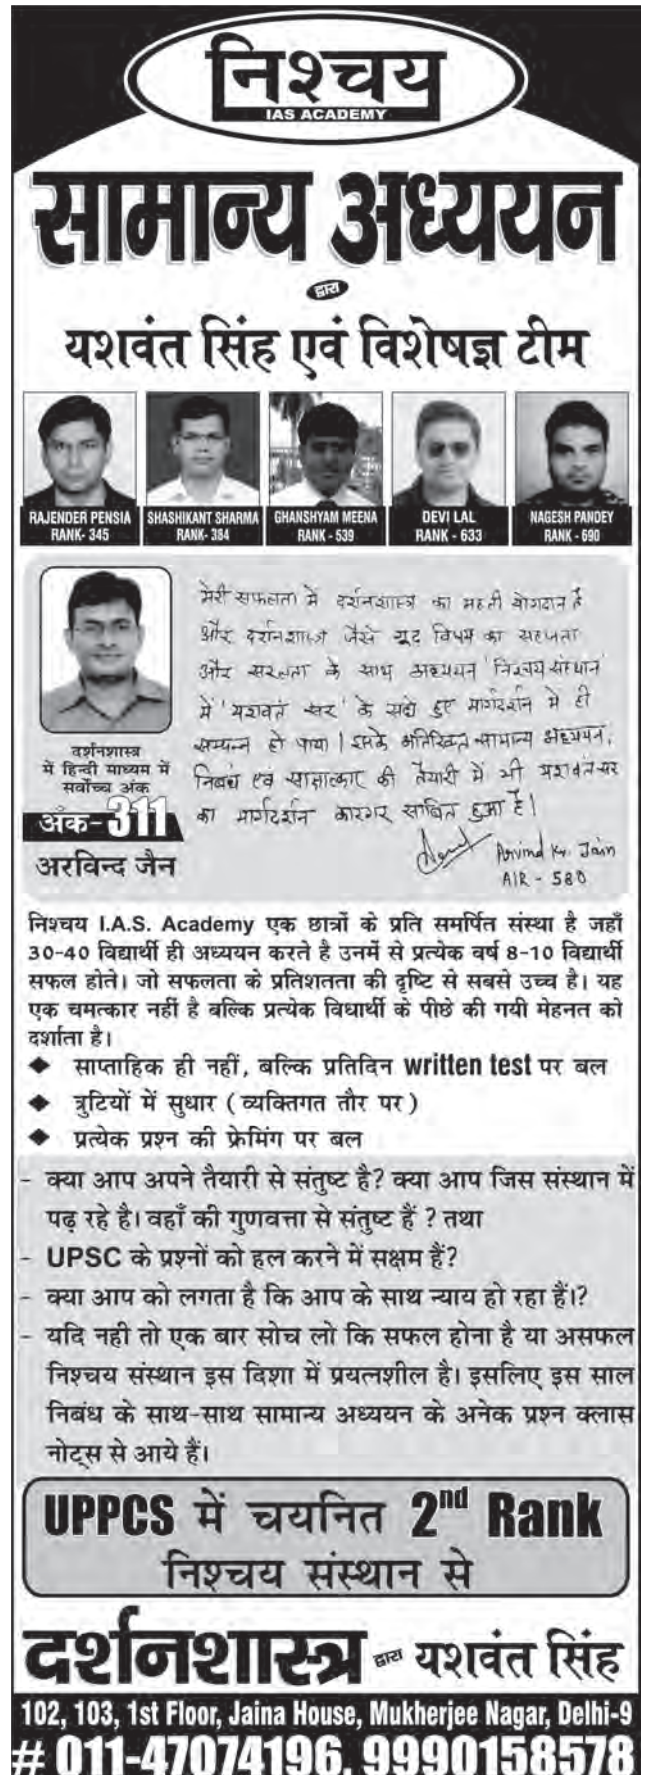 निश्चय
IAS ACADEMY
सामान्य अध्ययन
द्वारा
यशवंत सिंह एवं विशेषज्ञ टीम
RAJENDER PENSIA
RANK- 345
SHASHIKANT SHARMA
RANK- 384
GHANSHYAM MEENA
RANK - 539
DEVI LAL
RANK - 633
NAGESH PANDEY
RANK - 690
मेरी सफलता में दर्शनशास्त्र का महती योगदान है
और दर्शनशास्त्र जैसे गूढ विषय का सहजता
और सरलता के साथ अध्ययन 'निश्चय संस्थान'
में 'यशवंत सर' के सधे हुए मार्गदर्शन में ही
सम्पन्न हो पाया। इसके अतिरिक्त सामान्य अध्ययन,
निबंध एवं साक्षात्कार की तैयारी में भी यशवंत सर
का मार्गदर्शन कारगर साबित हुआ है।
Arvind Kr. Jain
AIR - 580
दर्शनशास्त्र
में हिन्दी माध्यम में
सर्वोच्च अंक
अंक-311
अरविन्द जैन
निश्चय I.A.S. Academy एक छात्रों के प्रति समर्पित संस्था है जहाँ
30-40 विद्यार्थी ही अध्ययन करते है उनमें से प्रत्येक वर्ष 8-10 विद्यार्थी
सफल होते। जो सफलता के प्रतिशतता की दृष्टि से सबसे उच्च है। यह
एक चमत्कार नहीं है बल्कि प्रत्येक विधार्थी के पीछे की गयी मेहनत को
दर्शाता है।
◆ साप्ताहिक ही नहीं, बल्कि प्रतिदिन written test पर बल
◆ त्रुटियों में सुधार (व्यक्तिगत तौर पर)
◆ प्रत्येक प्रश्न की फ्रेमिंग पर बल
- क्या आप अपने तैयारी से संतुष्ट है? क्या आप जिस संस्थान में
पढ़ रहे है। वहाँ की गुणवत्ता से संतुष्ट हैं ? तथा
- UPSC के प्रश्नों को हल करने में सक्षम हैं?
- क्या आप को लगता है कि आप के साथ न्याय हो रहा हैं।?
- यदि नही तो एक बार सोच लो कि सफल होना है या असफल
निश्चय संस्थान इस दिशा में प्रयत्नशील है। इसलिए इस साल
निबंध के साथ-साथ सामान्य अध्ययन के अनेक प्रश्न क्लास
नोट्स से आये हैं।
UPPCS में चयनित 2nd Rank
निश्चय संस्थान से
दर्शनशास्त्र द्वारा यशवंत सिंह
102, 103, 1st Floor, Jaina House, Mukherjee Nagar, Delhi-9
# 011-47074196, 9990158578